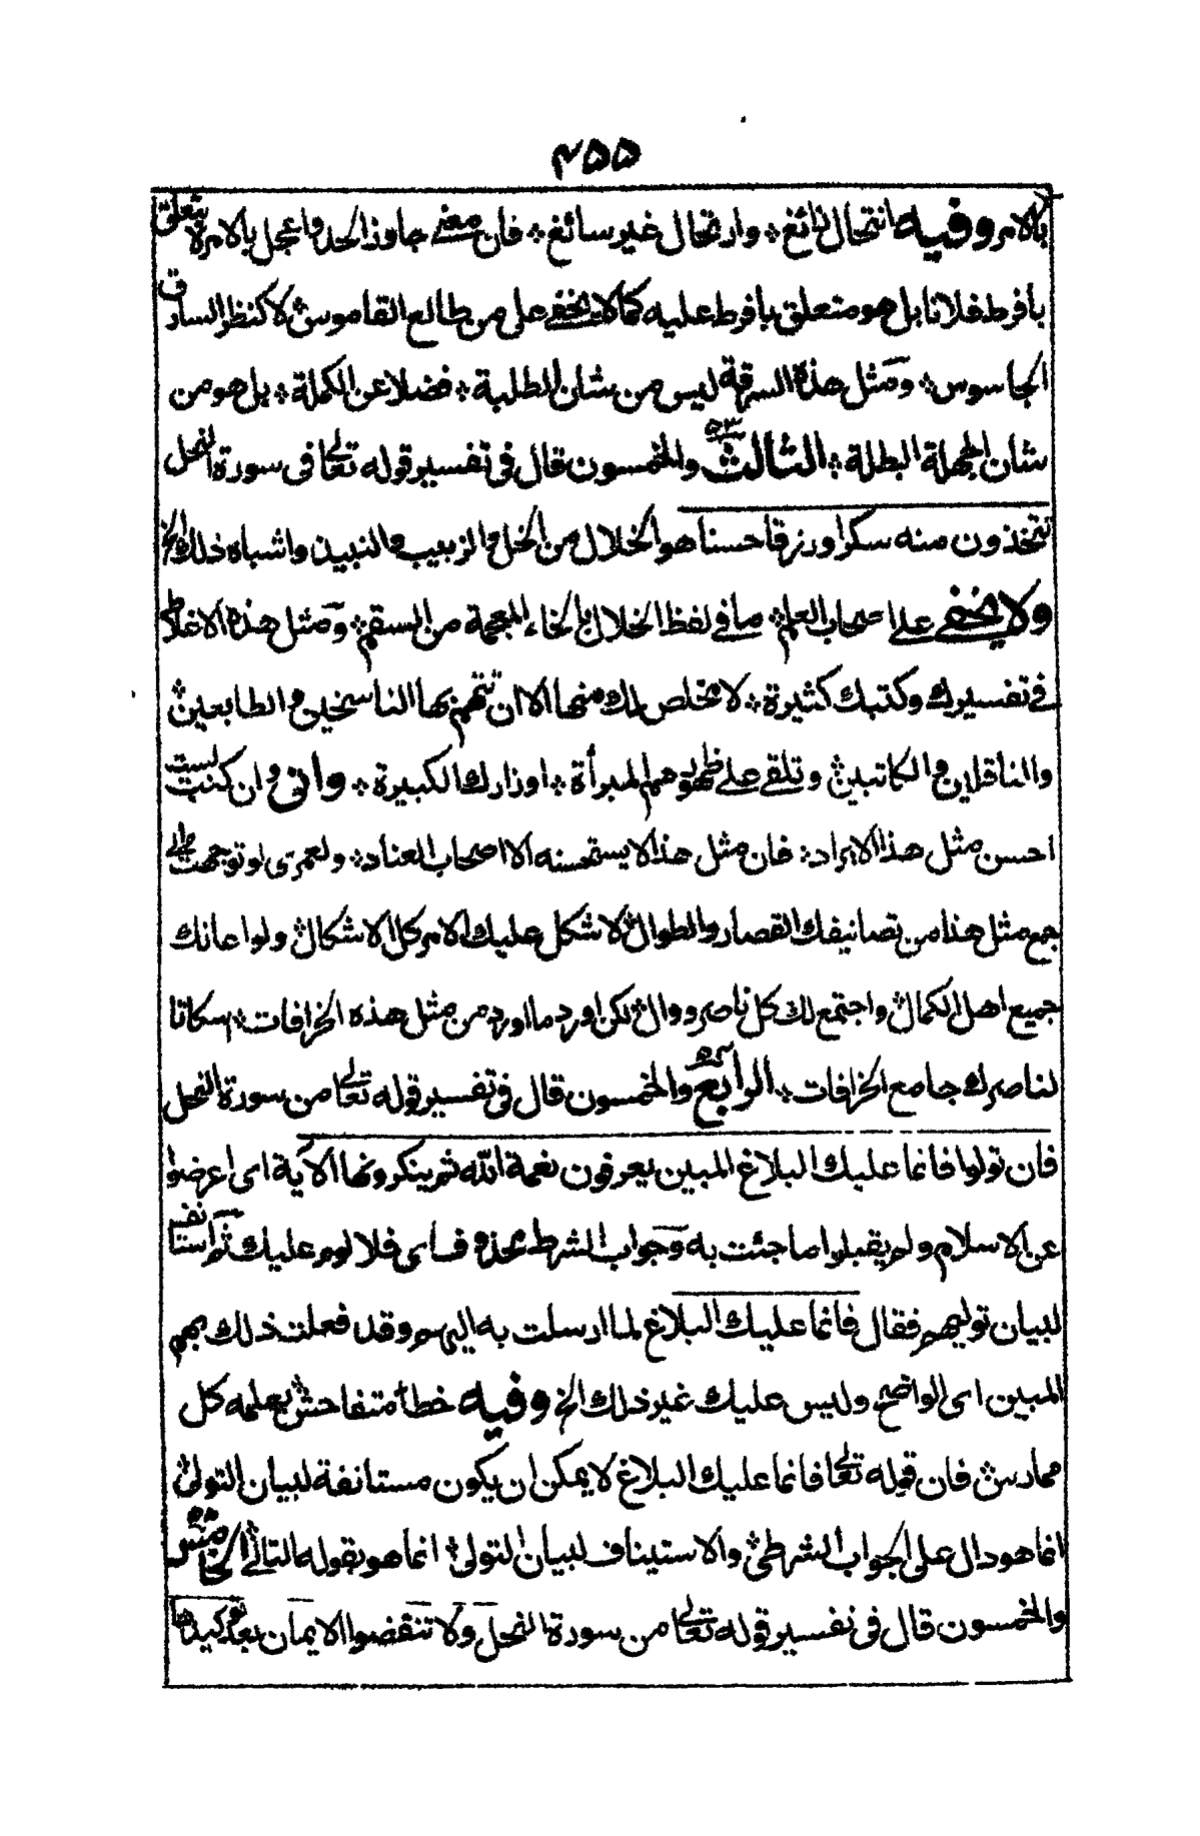 ٤٥٥
بالامر وفيه انتحال زائغ * وارتحال غير سائغ * فان معنى جاوز الحد واعجل بالامر لا يتعلق
بأفرط فلانا بل هو متعلق بأفرط عليه كما لا يخفى على من طالع القاموس * لا كنظر السارق
الجاسوس * ومثل هذه السرقة ليس من شان الطلبة * فضلا عن الكملة * بل هو من
شان الجهلة البطلة * الثالث ٥٣ والخمسون قال في تفسير قوله تعالى في سورة النحل
تتخذون منه سكرا ورزقا حسنا هو الخلال من الخل والزبيب والنبيذ واشباه ذلك الخ
ولا يخفى على اصحاب العلم * ما في لفظ الخلال بالخاء المعجمة من السقم * ومثل هذه الاغلاط
في تفسيرك وكتبك كثيرة * لا مخلص لك منها الا ان تتهم بها الناسخين والطابعين *
والناقلين والكاتبين * وتلقى على ظهورهم المبرأة * اوزارك الكبيرة * واني وان كنت لست
احسن مثل هذا الايراد * فان مثل هذا لا يستحسنه الا اصحاب العناد * ولعمري لو توجهت الى
جمع مثل هذا من تصانيفك القصار والطوال * لاشكل عليك الامر كل الاشكال * ولو اعانك
جميع اهل الكمال * واجتمع لك كل ناصر ووال * لكن اورد ما اورد من مثل هذه الخرافات * اسكاتا
لناصرك جامع الخرافات * الرابع ٥٤ والخمسون قال في تفسير قوله تعالى من سورة النحل
فان تولوا فانما عليك البلاغ المبين يعرفون نعمة الله ثم ينكرونها الآية اى اعرضوا
عن الاسلام ولم يقبلوا ما جئت به وجواب الشرط محذوف اى فلا لوم عليك ثم استانف
لبيان توليهم فقال فانما عليك البلاغ لما ارسلت به اليهم وقد فعلت ذلك بهم
المبين اى الواضح وليس عليك غير ذلك الخ وفيه خطأ متفاحش * يعلمه كل
ممارس * فان قوله تعالى فانما عليك البلاغ لا يمكن ان يكون مستانفة لبيان التولى *
انما هو دال على الجواب الشرطى * والاستيناف لبيان التولى * انما هو بقوله التالى * الخامس ٥٥
والخمسون قال في تفسير قوله تعالى من سورة النحل ولا تنقضوا الايمان بعد توكيدها